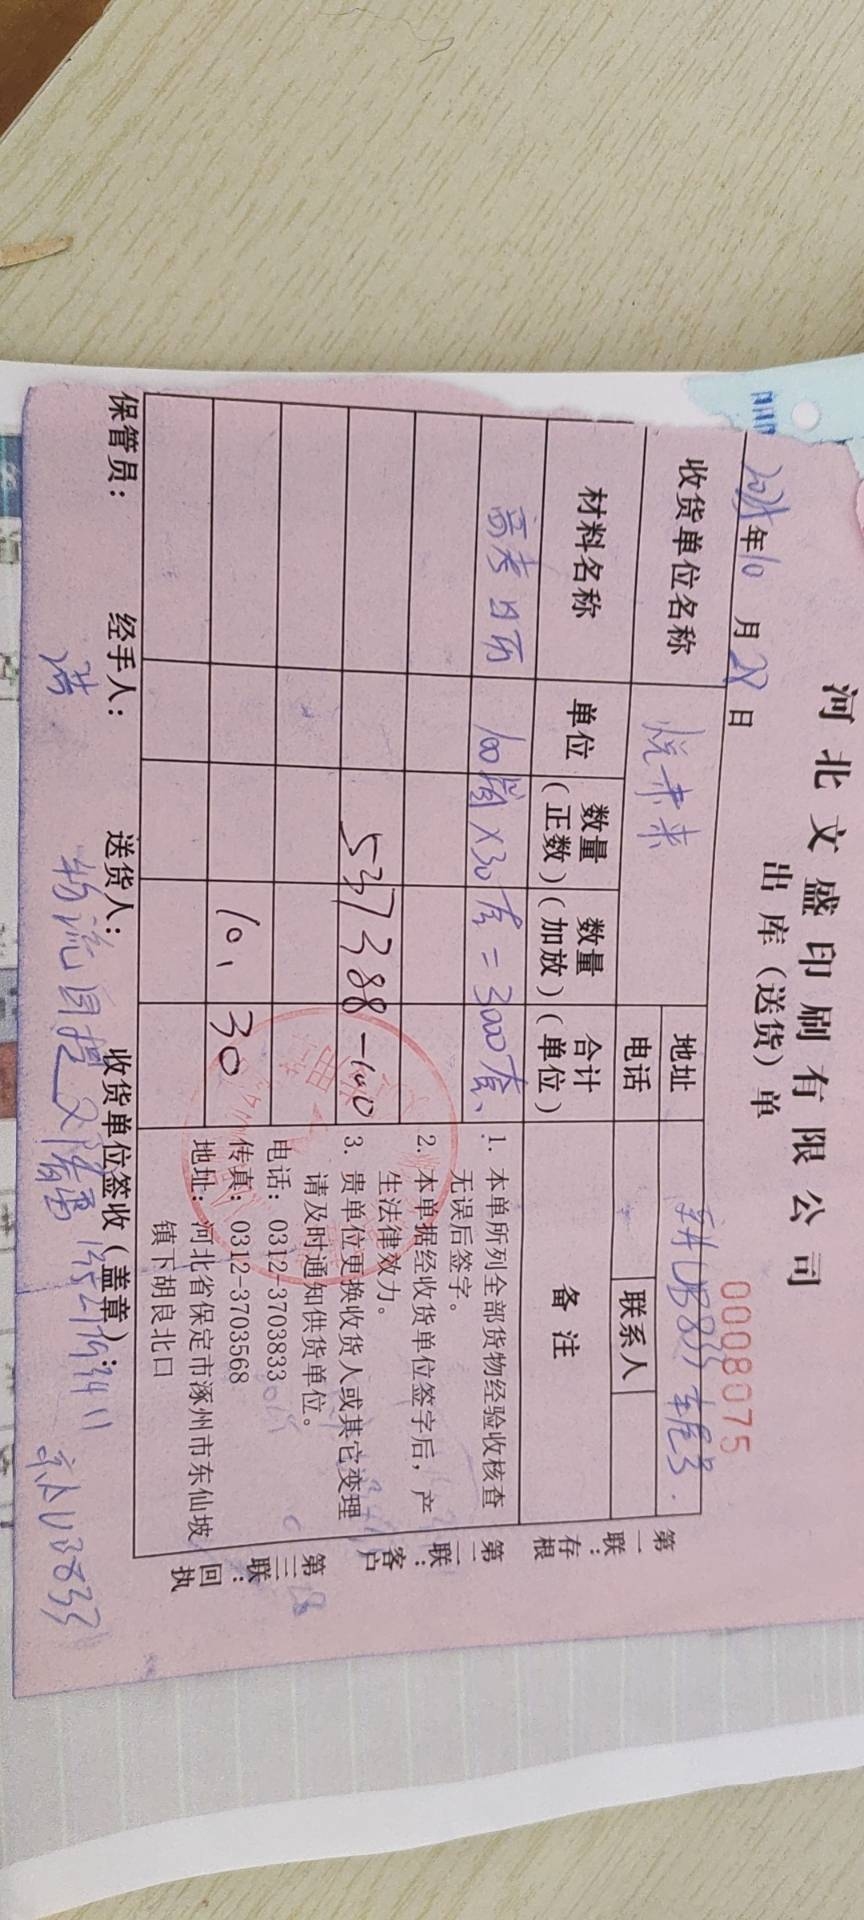 河北文盛印刷有限公司
出库(送货)单
0008075
年10月28日
收货单位名称 悦未来 地址
电话 联系人
材料名称 单位 数量(正数) 数量(加放) 合计(单位) 备注
高考日历 100箱×30套=3000套、
537388-100
10,30
1. 本单所列全部货物经验收核查
无误后签字。
2. 本单据经收货单位签字后，产
生法律效力。
3. 贵单位更换收货人或其它变理
请及时通知供货单位。
电话：0312-3703833
传真：0312-3703568
地址：河北省保定市涿州市东仙坡
镇下胡良北口
第一联：存根
第二联：客户
第三联：回执
保管员： 经手人： 送货人： 收货单位签收(盖章)：
物流自提